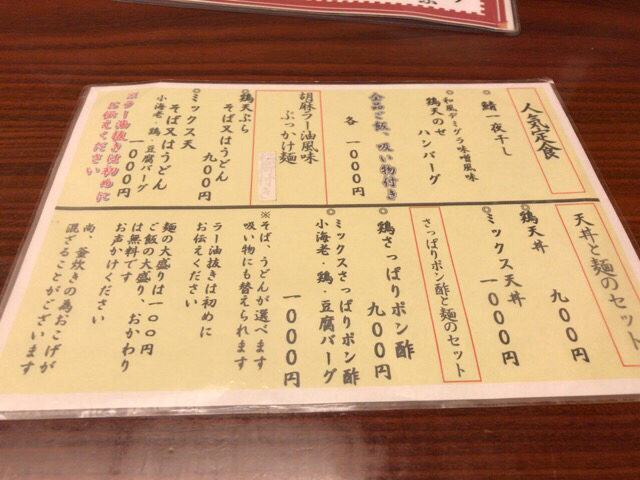 人気定食
鯖一夜干し
和風デミグラ味噌風味
鶏天のせ ハンバーグ
全品ご飯、吸い物付き
各 一〇〇〇円
胡麻ラー油風味
ぶっかけ麺
鶏天ぷら
そば又はうどん
九〇〇円
ミックス天
そば又はうどん
小海老・鶏・豆腐バーグ
一〇〇〇円
ラー油抜きは初めに
お伝えください
天丼と麺のセット
鶏天丼
九〇〇円
ミックス天丼
一〇〇〇円
さっぱりポン酢と麺のセット
鶏さっぱりポン酢
九〇〇円
ミックスさっぱりポン酢
小海老・鶏・豆腐バーグ
一〇〇〇円
※そば、うどんが選べます
吸い物にも替えられます
ラー油抜きは初めに
お伝えください
麺の大盛りは一〇〇円
ご飯の大盛り、おかわり
は無料です
お声かけください
尚、釜炊きの為おこげが
混ざることがございます